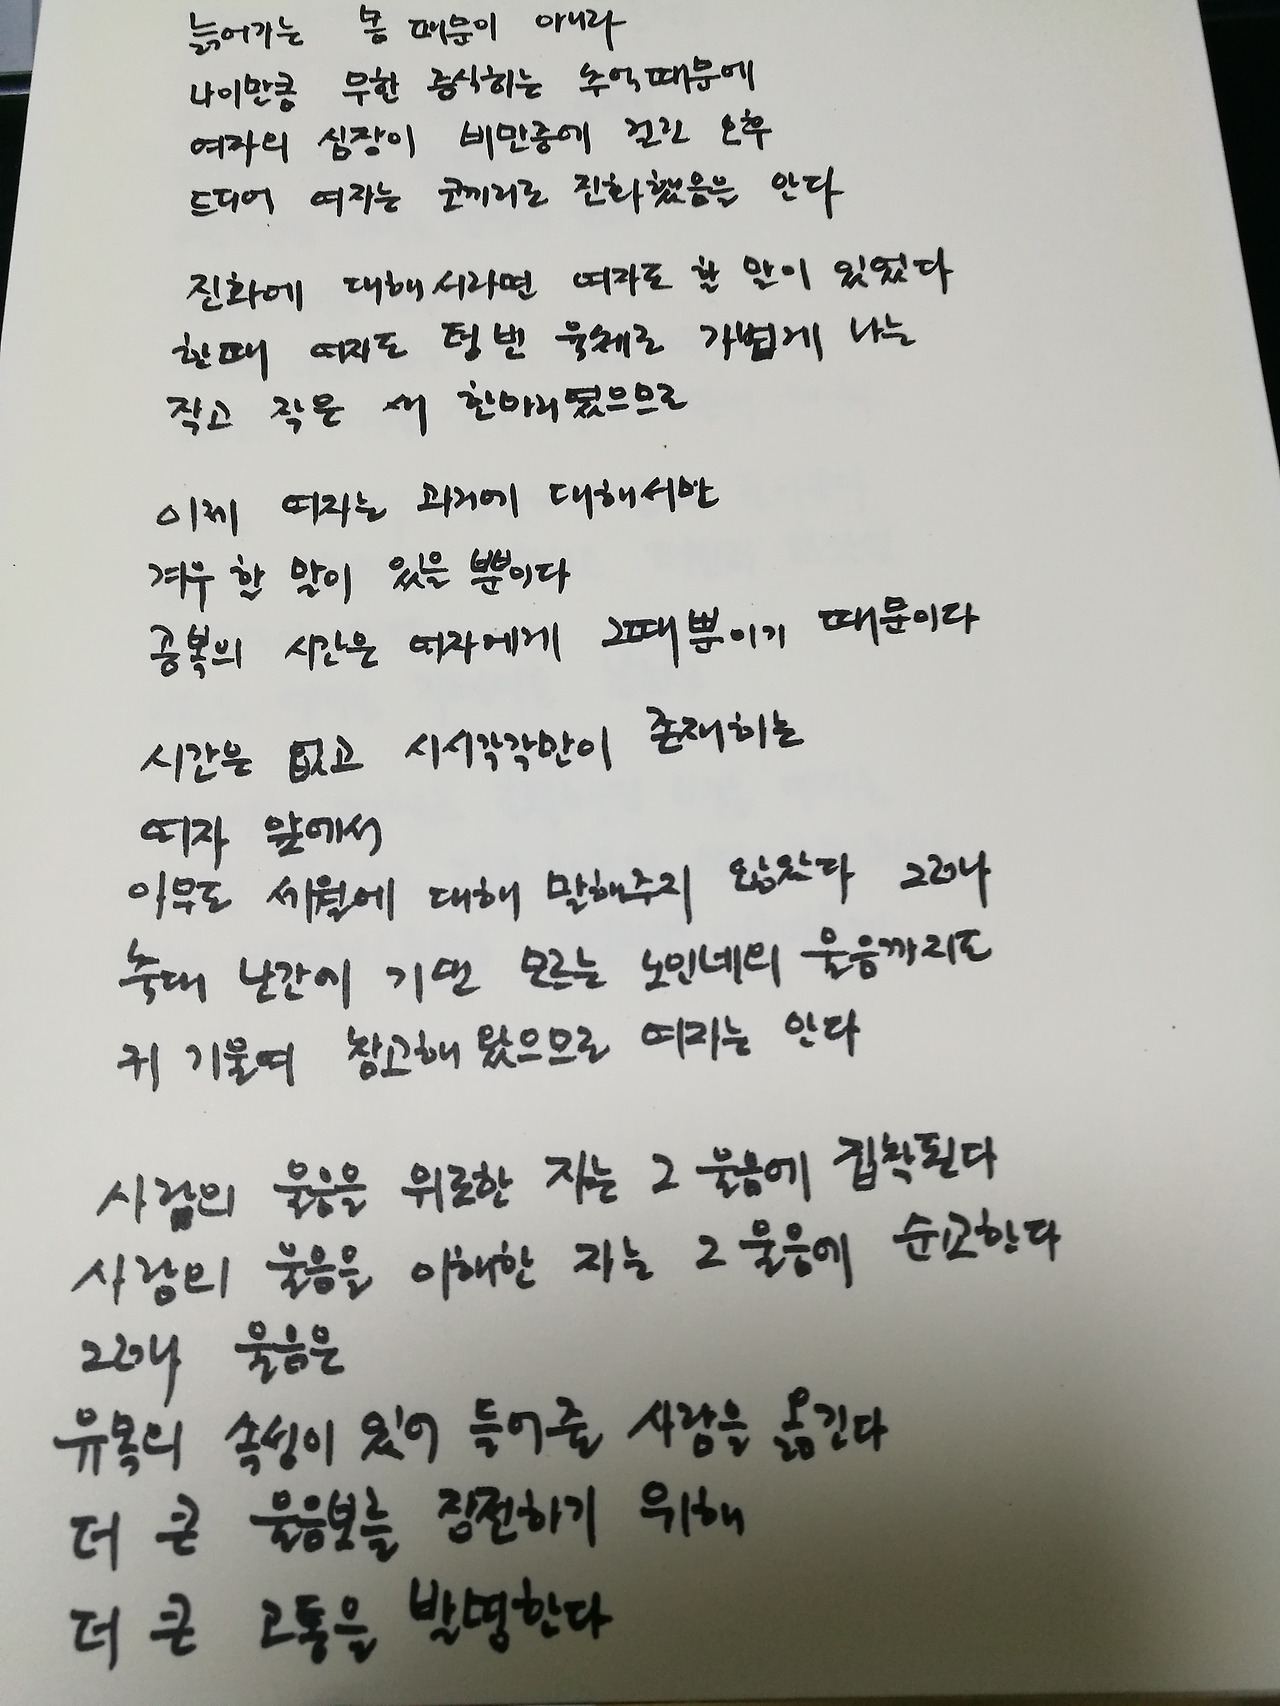 늙어가는 몸 때문이 아니라
나이만큼 무한 증식하는 추억때문에
여자의 심장이 비만증에 걸린 오후
드디어 여자는 코끼리로 진화했음을 안다
진화에 대해서라면 여자도 할 말이 있었다
한때 여자도 텅 빈 육체로 가볍게 나는
작고 작은 새 한마리였으므로
이제 여자는 과거에 대해서만
겨우 한 말이 있을 뿐이다
공복의 시간은 여자에게 그때뿐이기 때문이다
시간은 없고 시시각각만이 존재하는
여자 앞에서
아무도 세월에 대해 말해주지 않았다 그러나
축대 난간에 기댄 모르는 노인네의 울음까지도
귀 기울여 참고해 왔으므로 여자는 안다
사람의 울음을 위로한 자는 그 울음에 접착된다
사람의 울음을 이해한 자는 그 울음에 순교한다
그러나 울음은
유목의 속성이 있어 들어줄 사람을 옮긴다
더 큰 울음보를 장전하기 위해
더 큰 고통을 발명한다